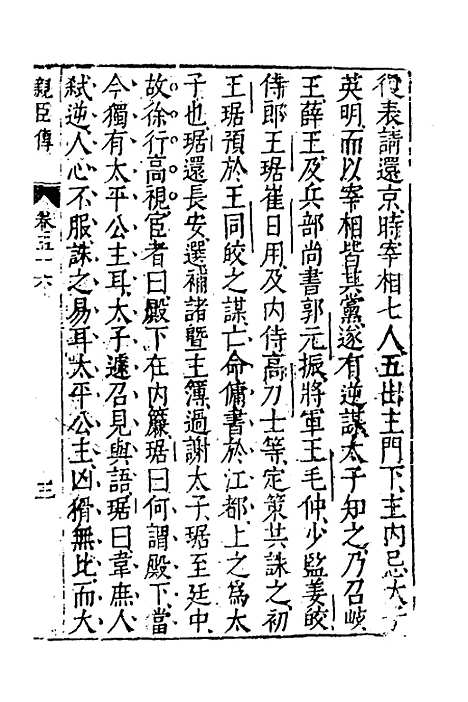 復表請還京時宰相七人五出主門下主内忌太子
英明而以宰相皆其黨遂有逆謀太子知之乃召岐
王薛王及兵部尚書郭元振將軍王毛仲少監姜皎
侍郎王琚崔日用及内侍高刀士等定策共誅之初
王琚預於王同皎之謀亡命傭書於江都上之爲太
子也琚還長安選補諸暨主簿過謝太子琚至廷中
故徐行高視宦者曰殿下在内簾琚曰何謂殿下當
今獨有太平公主耳太子遽召見與語琚曰韋庶人
弑逆人心不服誅之易耳太平公主凶猾無比而大
親臣傳
卷五十六
三